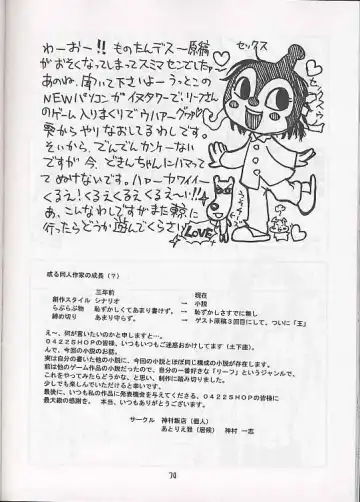 わーおー!! ものたんデスー原稿
がおそくなってしまってスミマセンでしたァ
あのね、聞いて下さいよーうっとこの
NEWパソコンがイヌタワーでリーフさん
のゲーム入りまくりでウハァーグゥァルァ
雫からやりなおしてるわしです。
そいから、でんでんカンケーない
ですが今、どきんちゃんにハマッて
てぬけないです。ハァーカワイイー
くるえ!くるえくるえくるえーい!!
あ、こんなわしですがまた東京に
行ったらどうか遊んでくらさい
セックス
LOVE
或る同人作家の成長(?)
三年前 現在
創作スタイル シナリオ → 小説
らぶらぶ物 恥ずかしくてあまり書けず。 → 恥ずかしさすでに無し
締め切り あまり守らず。 → ゲスト原稿3回目にして、ついに「王」
え〜、何が言いたいのかと申しますと…。
0422SHOPの皆様、いつもいつもご迷惑おかけしてます(土下座)。
んで、今回の小説のお話。
実は自分の書いた他の小説に、今回の小説とほぼ同じ構成の小説が存在します。
前は他のゲーム作品の小説だったので、自分の一番好きな「リーフ」というジャンルで、
これをやってみたらどうかな、と思い、制作に踏み切りました。
少しでも楽しんでいただけると幸いです。
最後に、いつも私の作品に発表機会を与えてくださる、0422SHOPの皆様に
最大級の感謝を。 本当、いつもありがとうございます。
サークル 神村飯店(個人)
あとりえ雅(居候) 神村 一志
74